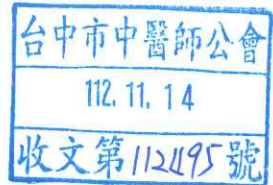 台中市中醫師公會
112. 11. 14
收文第1121195號